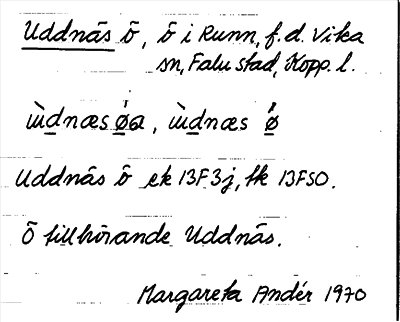 Uddnäs ö, ö i Runn, f. d. Vika
sn, Falu stad, Kopp. l.
ɯ̀dnæs øa, ɯ̀dnæs ǿ
Uddnäs ö ek 13F3j, tk 13FSO.
Ö tillhörande Uddnäs.
Margareta Andér 1970